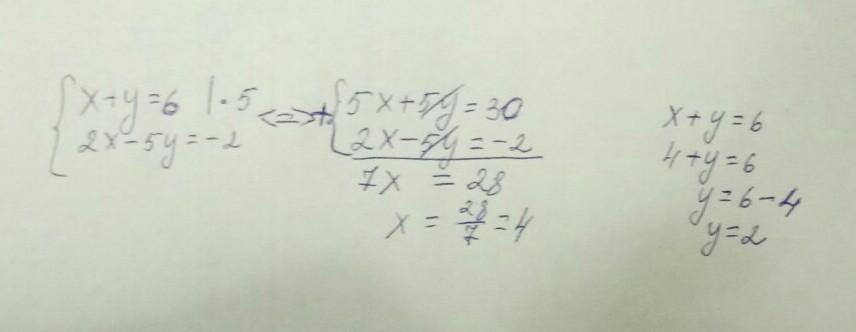 {x+y=6 |·5 <=> +{5x+5y=30
2x-5y=-2 2x-5y=-2
7x = 28
x = 28/7 = 4
x+y=6
4+y=6
y=6-4
y=2